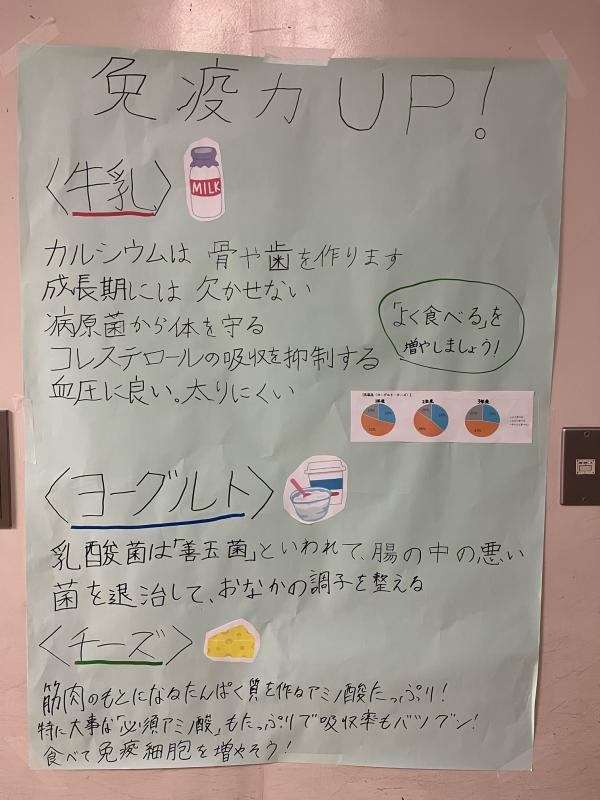 免疫力UP!
〈牛乳〉
MILK
カルシウムは 骨や歯を作ります
成長期には 欠かせない
病原菌から体を守る
コレステロールの吸収を抑制する
血圧に良い。太りにくい
「よく食べる」を
増やしましょう!
1年生 2年生 3年生
〈ヨーグルト〉
乳酸菌は「善玉菌」といわれて、腸の中の悪い
菌を退治して、おなかの調子を整える
〈チーズ〉
筋肉のもとになるたんぱく質を作るアミノ酸たっぷり!
特に大事な「必須アミノ酸」もたっぷりで吸収率もバツグン!
食べて免疫細胞を増やそう!